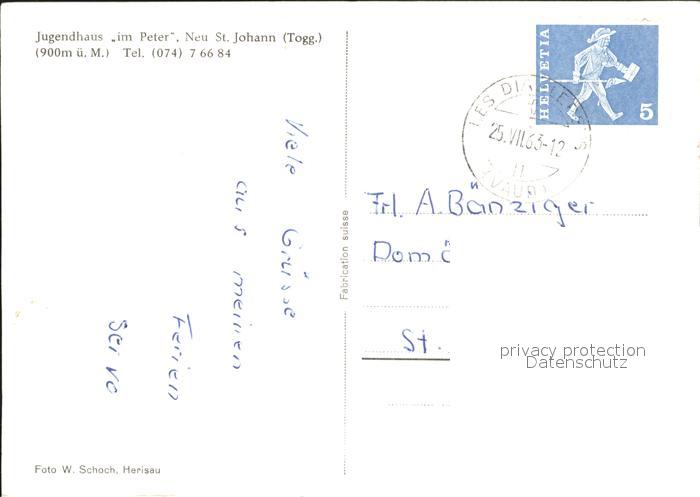 Jugendhaus „im Peter", Neu St. Johann (Togg.)
(900m ü. M.) Tel. (074) 7 66 84
Viele Grüsse
aus meinen
Ferien
Servo
Foto W. Schoch, Herisau
Fabrication suisse
HELVETIA
5
LES DIABLERETS
25.VII.63-12
(VAUD)
Frl. A. Bänziger
Domä
St.
privacy protection
Datenschutz